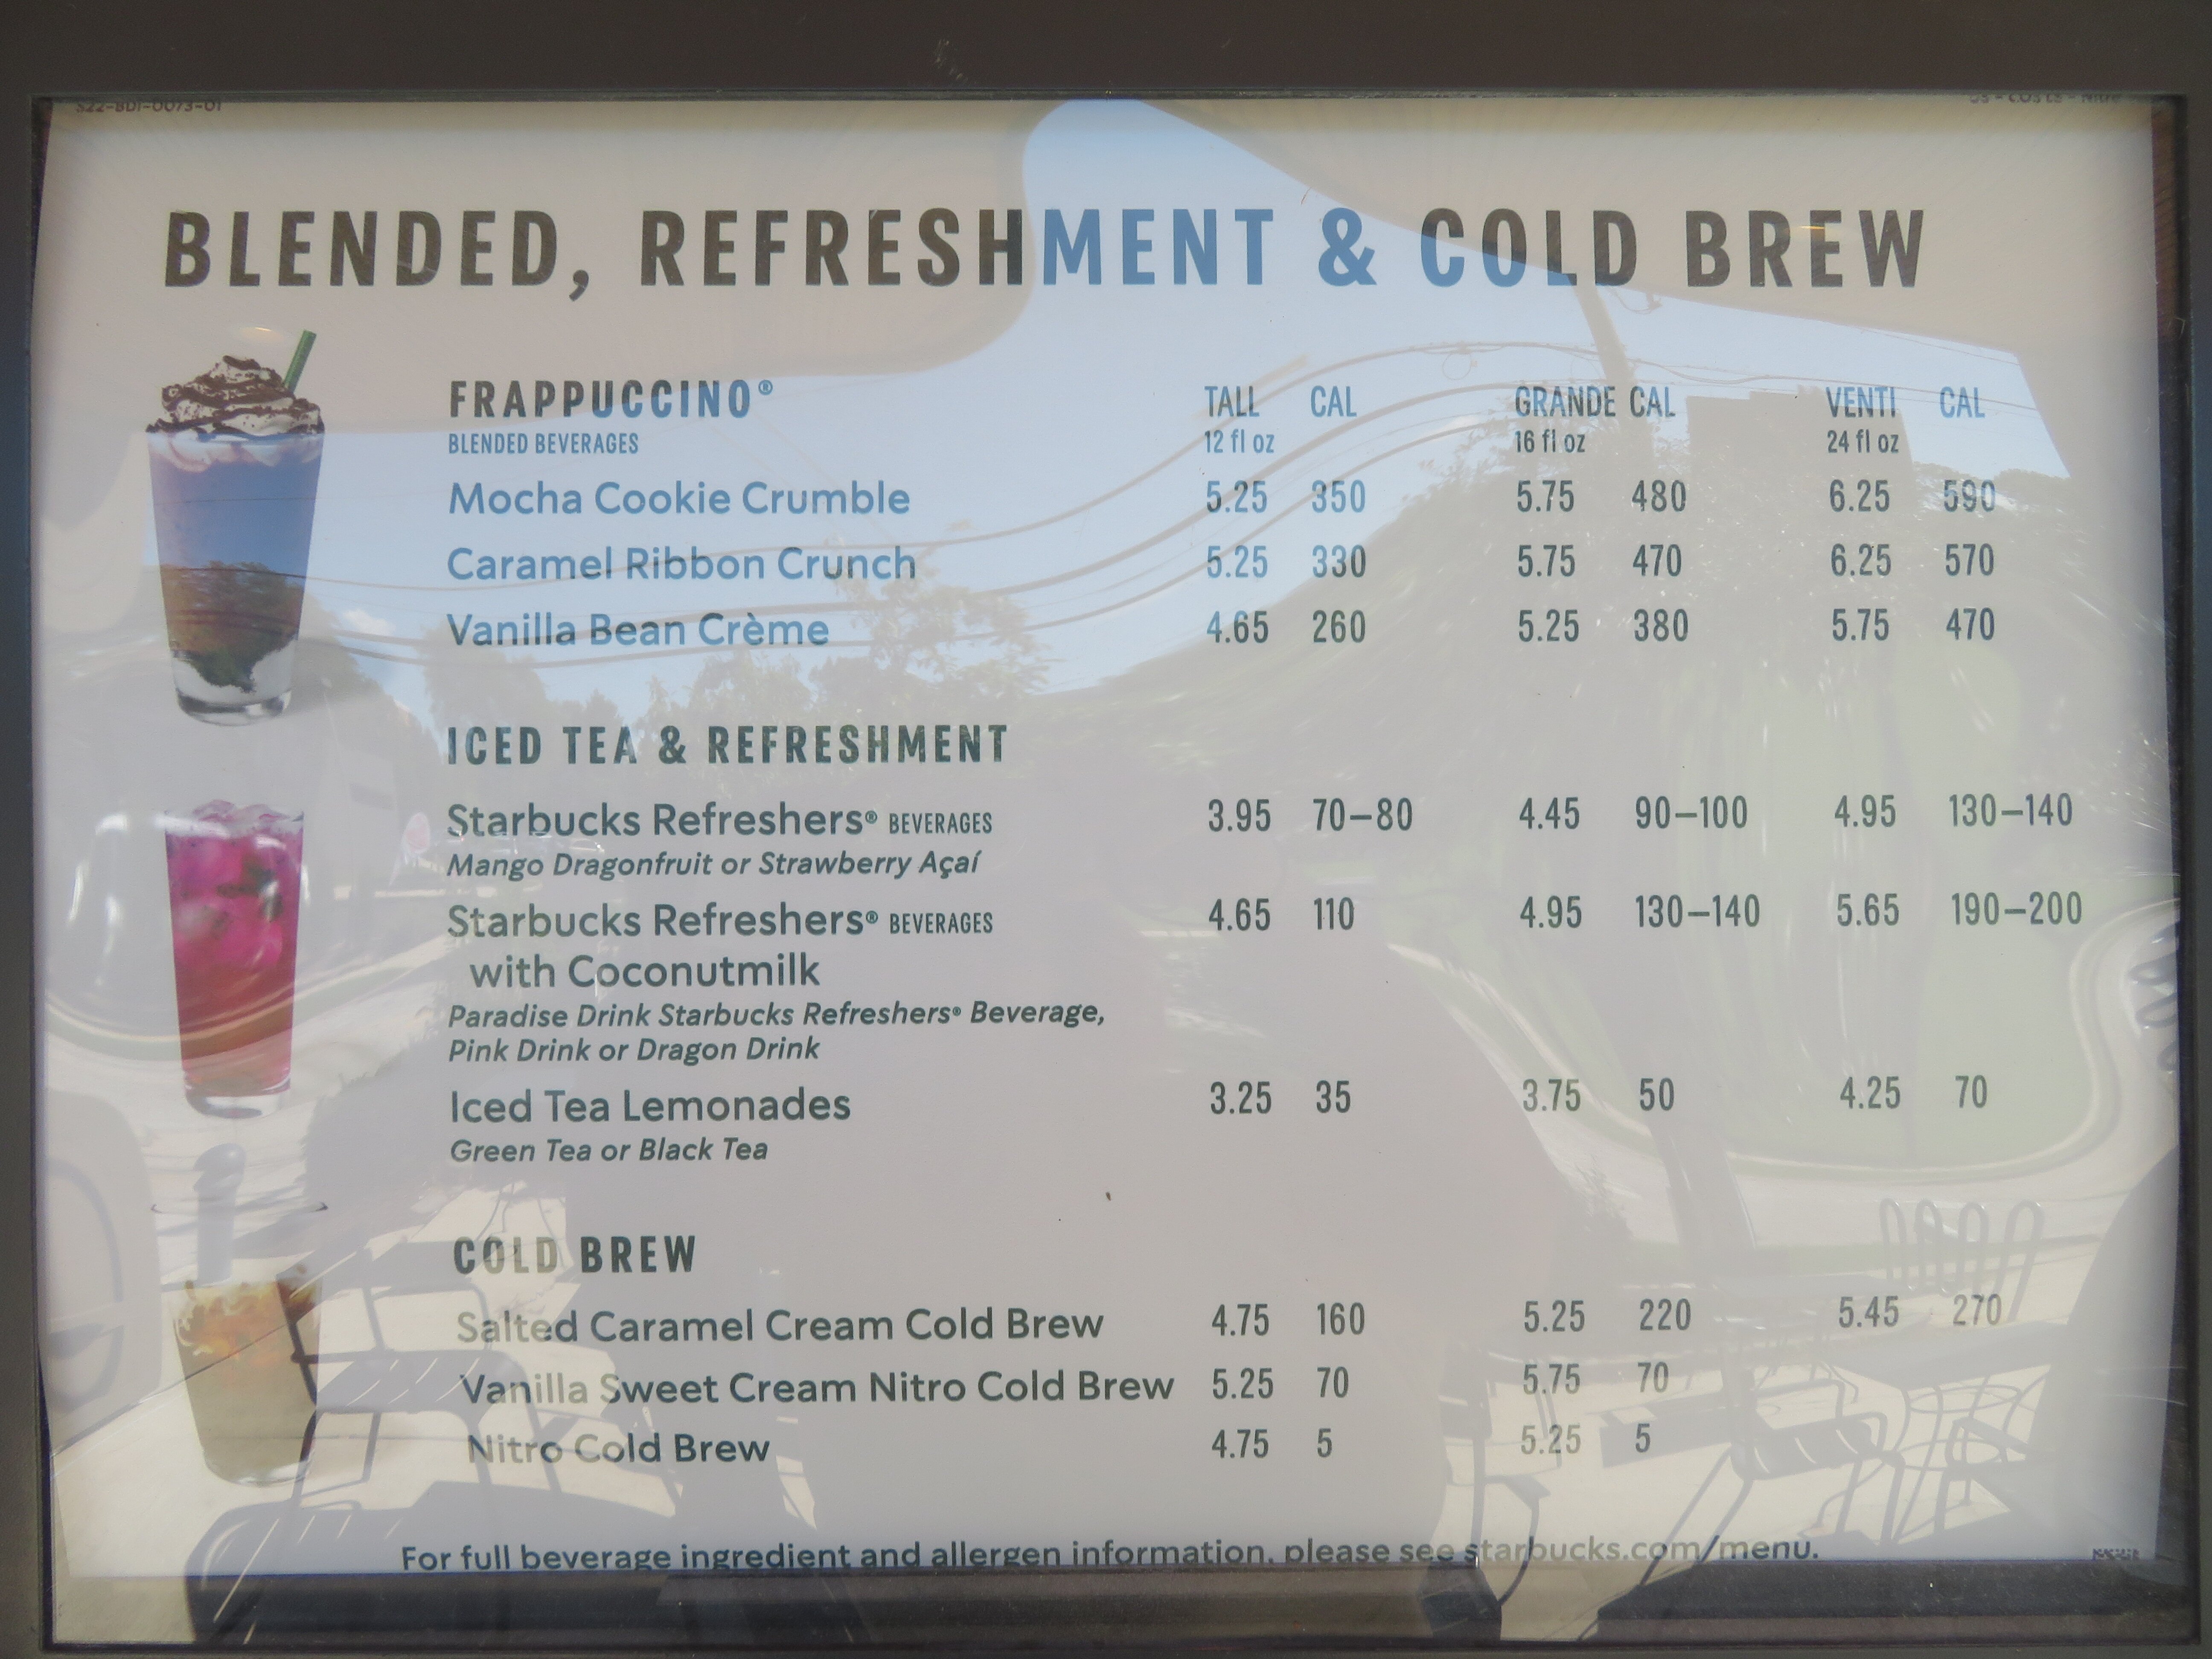 S22-BDI-0073-01
BLENDED, REFRESHMENT & COLD BREW
FRAPPUCCINO® TALL CAL GRANDE CAL VENTI CAL
BLENDED BEVERAGES 12 fl oz 16 fl oz 24 fl oz
Mocha Cookie Crumble 5.25 350 5.75 480 6.25 590
Caramel Ribbon Crunch 5.25 330 5.75 470 6.25 570
Vanilla Bean Crème 4.65 260 5.25 380 5.75 470
ICED TEA & REFRESHMENT
Starbucks Refreshers® BEVERAGES 3.95 70–80 4.45 90–100 4.95 130–140
Mango Dragonfruit or Strawberry Açaí
Starbucks Refreshers® BEVERAGES 4.65 110 4.95 130–140 5.65 190–200
with Coconutmilk
Paradise Drink Starbucks Refreshers® Beverage,
Pink Drink or Dragon Drink
Iced Tea Lemonades 3.25 35 3.75 50 4.25 70
Green Tea or Black Tea
COLD BREW
Salted Caramel Cream Cold Brew 4.75 160 5.25 220 5.45 270
Vanilla Sweet Cream Nitro Cold Brew 5.25 70 5.75 70
Nitro Cold Brew 4.75 5 5.25 5
For full beverage ingredient and allergen information, please see starbucks.com/menu.